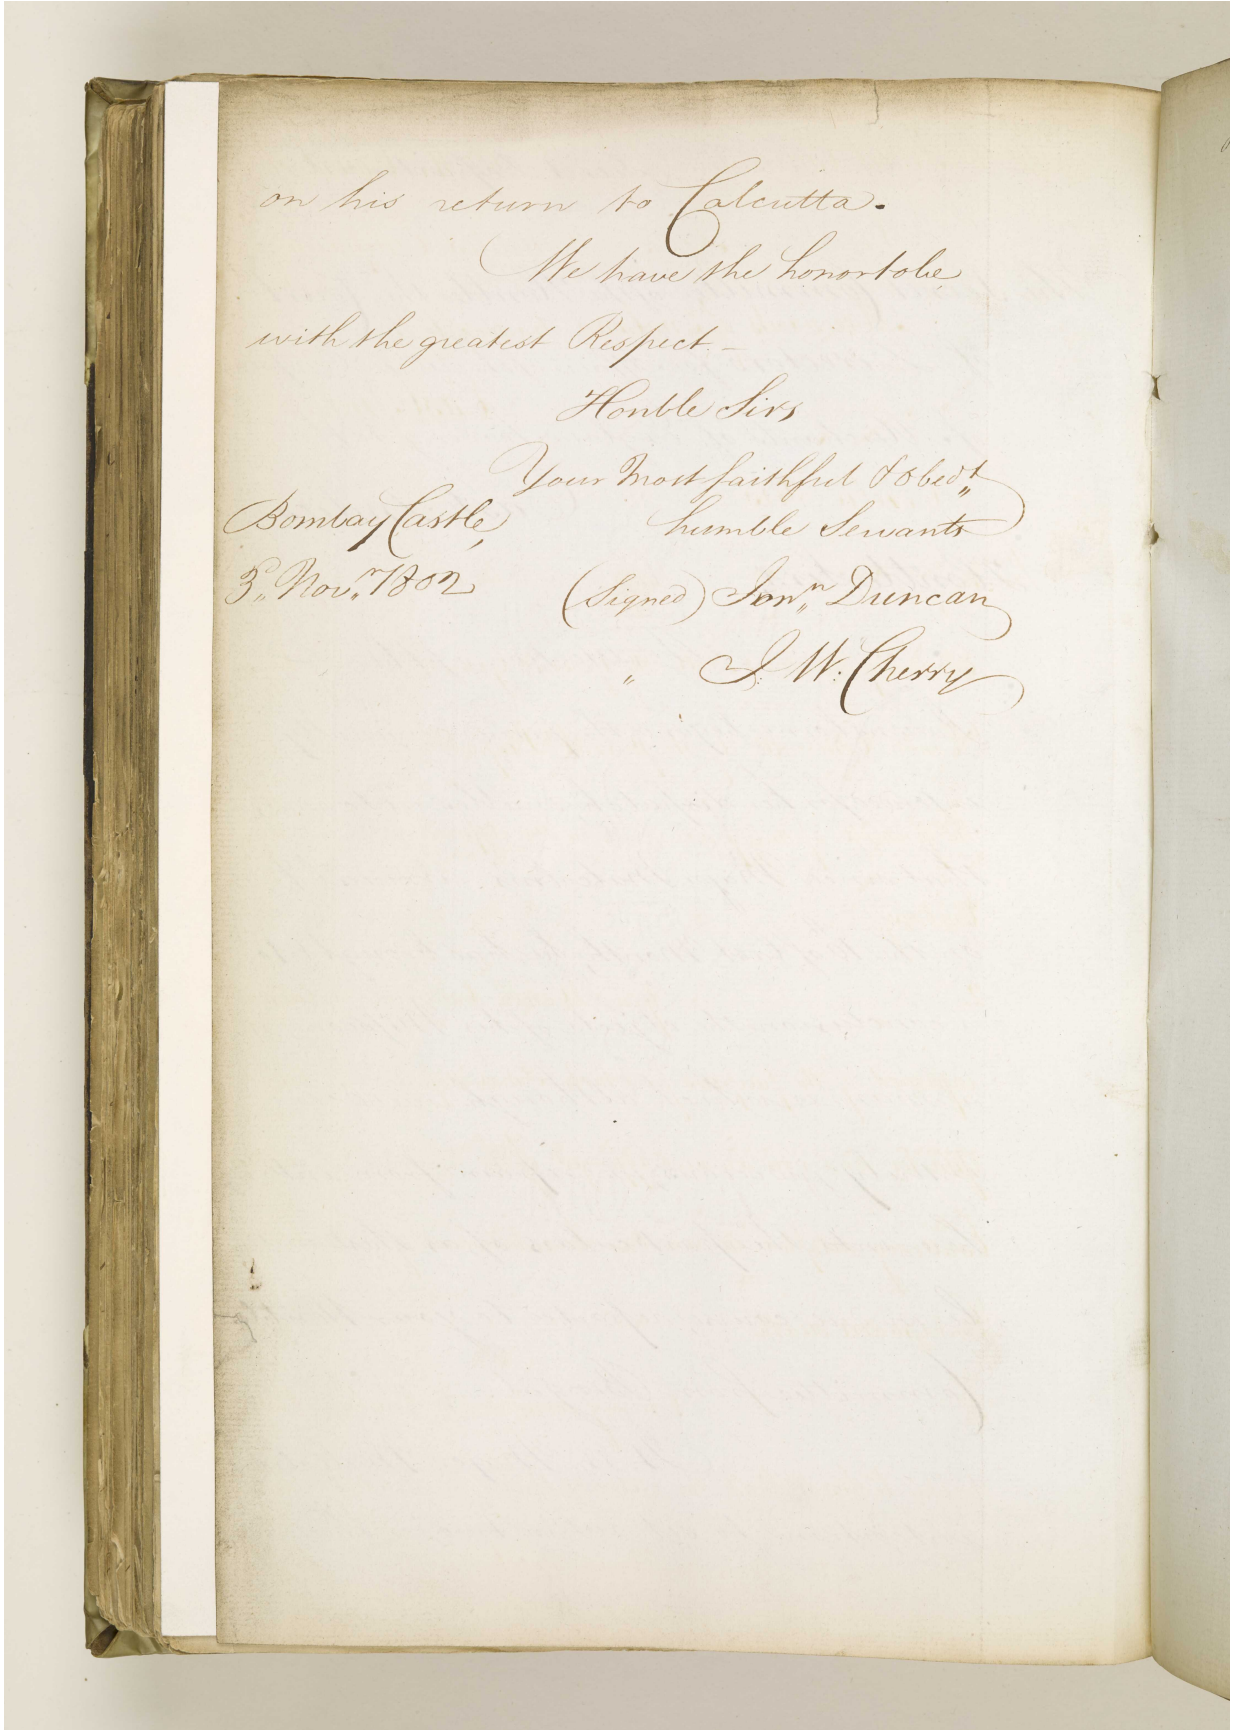 on his return to Calcutta.
We have the honor to be
with the greatest Respect. —
Honble Sirs
Your Most faithful & obedt
humble Servants
Bombay Castle,
3d. Novr. 1802
(Signed) Jonn. Duncan
" J. W: Cherry